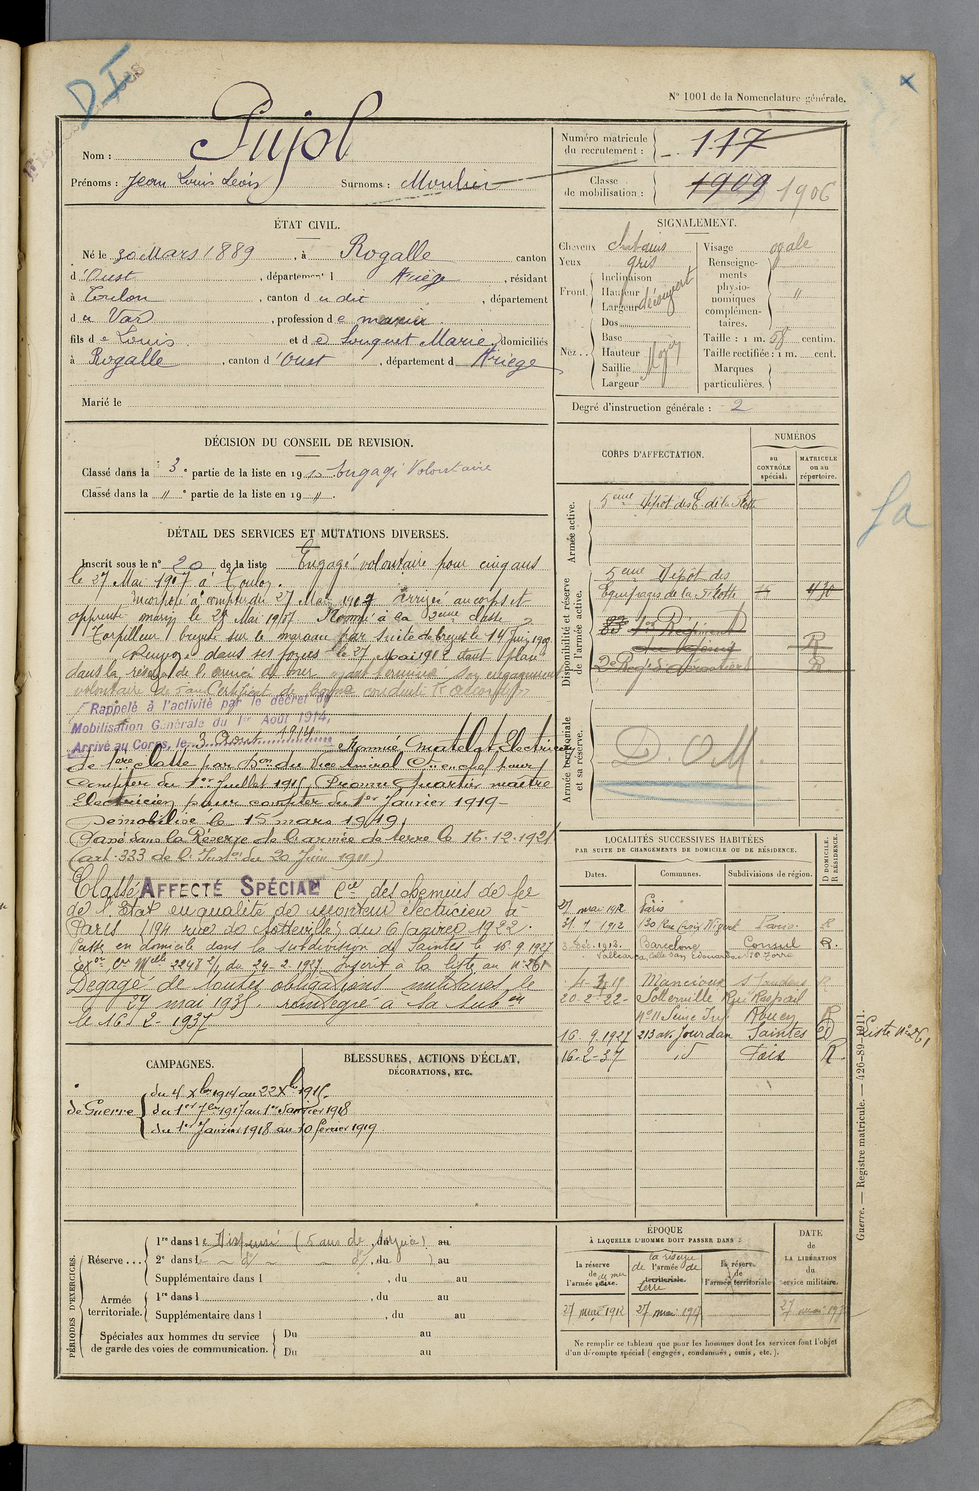 D I
N° 1001 de la Nomenclature générale.
Nom : Pujol
Prénoms : Jean Louis Léon Surnoms : Moulier
Numéro matricule du recrutement : 117
Classe de mobilisation : 1909 1906
ÉTAT CIVIL.
Né le 30 Mars 1889, à Rogalle canton
d'Oust, département d Ariège, résidant
à Toulon, canton d u dit, département
d u Var, profession d e marin
fils d e Louis et d e Souquet Marie, domiciliés
à Rogalle, canton d'Oust, département d Ariège
Marié le
SIGNALEMENT.
Cheveux chatains
Yeux gris
Front. Inclinaison
Hauteur
Largeur découvert
Nez... Dos
Base
Hauteur Moyen
Saillie
Largeur
Visage ovale
Renseignements physionomiques complémentaires. "
Taille : 1 m. 58 centim.
Taille rectifiée : 1 m. cent.
Marques particulières.
Degré d'instruction générale : 2
DÉCISION DU CONSEIL DE REVISION.
Classé dans la 3e partie de la liste en 1910 Engagé Volontaire
Classé dans la " e partie de la liste en 19 "
CORPS D'AFFECTATION.
NUMÉROS
au CONTRÔLE spécial.
MATRICULE ou au répertoire.
Armée active.
5eme Dépôt des E. de la Flotte
Disponibilité et réserve de l'armée active.
5eme Dépôt des
Equipages de la Flotte 430
R
R
Armée territoriale et sa réserve.
D. OM.
DÉTAIL DES SERVICES ET MUTATIONS DIVERSES.
Inscrit sous le n° 20 de la liste Engagé volontaire pour cinq ans
le 27 Mai 1907 à Toulon.
Incorporé à compter du 27 Mai 1907 arrivé au corps et
apprenti marin le 28 Mai 1907 Nommé à la 2eme classe
Torpilleur breveté sur le marsau par suite de brevet le 14 Juin 1909
Renvoyé dans ses foyers le 27 Mai 1912 étant placé
dans la réserve de l'armée de mer ayant terminé son engagement
volontaire de 5 ans Certificat de bonne conduite accordé
Rappelé à l'activité par le décret de
Mobilisation Générale du 1er Août 1914,
Arrivé au Corps, le 3 Août 1914 Nommé Matelot Electricien
de 1ere classe par Don du Vice Amiral Ct en chef pour
compter du 1er Juillet 1915 Promu Quartier maître
Electricien pour compter du 1er Janvier 1919
Démobilisé le 15 mars 1919
Passé dans la Réserve de l'armée de terre le 16-12-1921
(art. 333 de l'Inston du 20 Juin 1911)
Classé AFFECTÉ SPÉCIAL Cie des chemins de fer
de l'Etat en qualité de monteur électricien à
Paris (194 rue de Sotteville) du 6 Janvier 1922.
Passé en domicile dans la subdivision de Saintes le 16.9.1927
Exon Cre Melle 2248 2/1 du 24-2-1927 Inscrit à la liste au N° 261
Dégagé de toutes obligations militaires le
27 mai 1935 réintégré à la sub on
le 16-2-1937
LOCALITÉS SUCCESSIVES HABITÉES
PAR SUITE DE CHANGEMENTS DE DOMICILE OU DE RÉSIDENCE.
Dates. Communes. Subdivisions de région. D DOMICILE. R RÉSIDENCE.
27 mai 1912 Paris
31 7 1912 130 Rue Croix Nivert Paris R
3 Déc. 1913 Barcelone Consul R.
4 2 19 Mancioux St Gaudens R
20-2-22 Sotteville Rue Raspail
N° 11 Seine Infre Rouen R
16 9.1927 213 av. Jourdan Saintes D
16-2-37 Foix R.
Liste N° 261
CAMPAGNES.
de Guerre
du 4 Xbre 1914 au 22 Xbre 1915
du 1er 7bre 1917 au 1er Janvier 1918
du 1er Janvier 1918 au 10 février 1919
BLESSURES, ACTIONS D'ÉCLAT,
DÉCORATIONS, ETC.
PÉRIODES D'EXERCICES.
Réserve...
1re dans l e Dispensé (5 ans de service), du au
2e dans l , du au
Supplémentaire dans l , du au
Armée territoriale.
1re dans l , du au
Supplémentaire dans l , du au
Spéciales aux hommes du service de garde des voies de communication.
Du au
Du au
ÉPOQUE
À LAQUELLE L'HOMME DOIT PASSER DANS :
la réserve de l'armée de mer
la réserve de l'armée de territoriale. terre
la réserve de l'armée territoriale
DATE DE LA LIBÉRATION du service militaire.
27 mai 1912
Ne remplir ce tableau que pour les hommes dont les services font l'objet
d'un décompte spécial (engagés, condamnés, omis, etc.).
Guerre. — Registre matricule. — 426-89-1911.